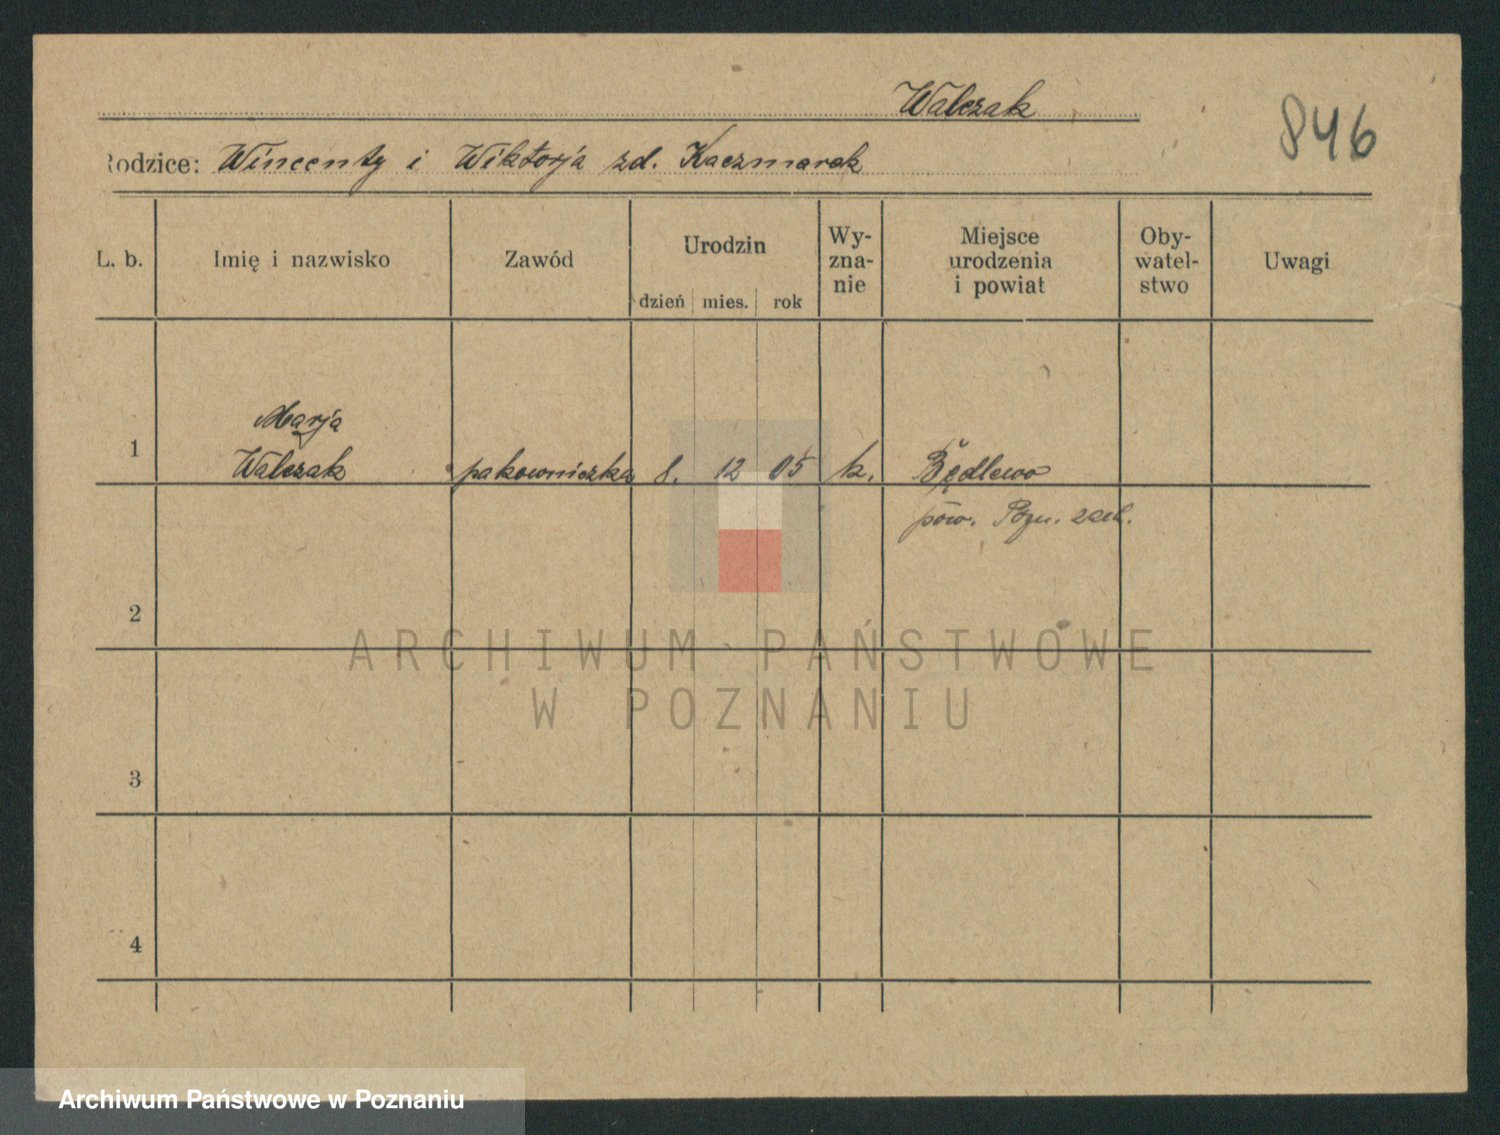 Walczak
846
Rodzice: Wincenty i Wiktorja zd. Kaczmarek
L. b.
Imię i nazwisko
Zawód
Urodzin
dzień mies. rok
Wy-
zna-
nie
Miejsce
urodzenia
i powiat
Oby-
watel-
stwo
Uwagi
1
Marja
Walczak
pakowniczka
8. 12 05
k.
Będlewo
pow. Pozn. zach.
2
ARCHIWUM PAŃSTWOWE
W POZNANIU
3
4
Archiwum Państwowe w Poznaniu